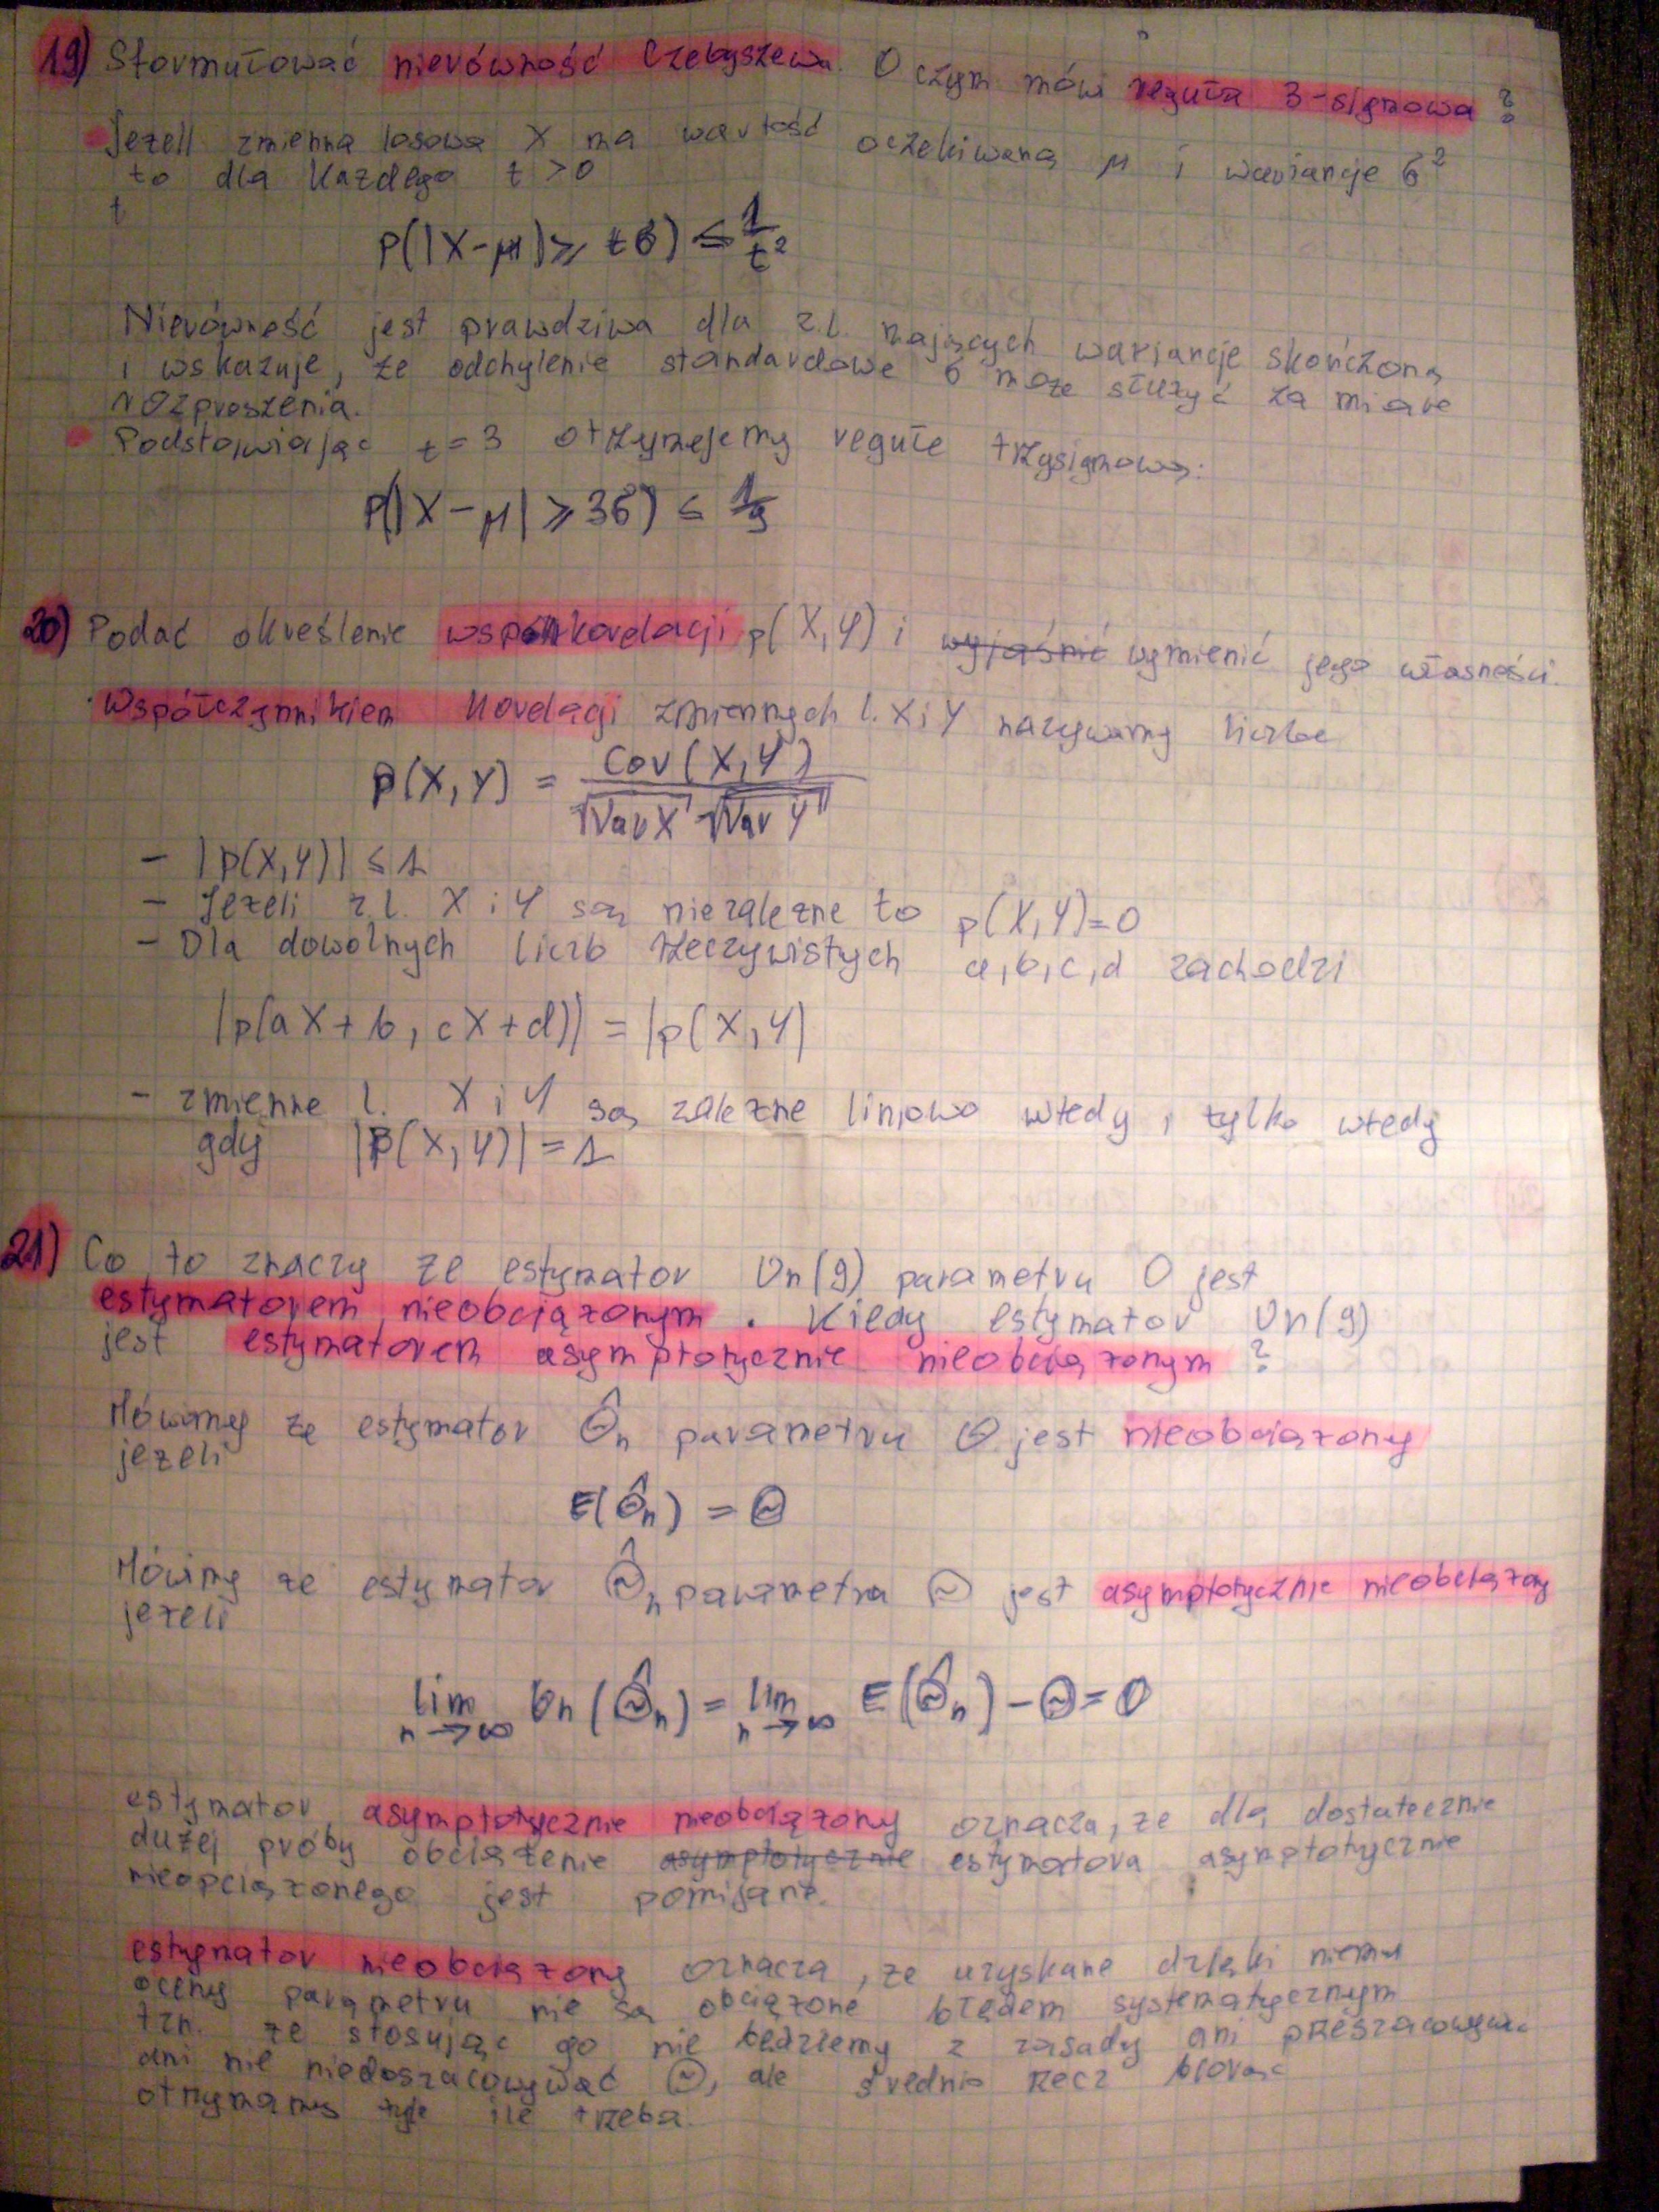 19) Sformułować nierówność Czebyszewa. O czym mówi reguła 3-sigmowa?
Jeżeli zmienna losowa X ma wartość oczekiwaną μ i wariancje σ²
to dla każdego t > 0
t
P(|X-μ|≥ tσ) ≤ 1/t²
Nierówność jest prawdziwa dla z.l. mających wariancje skończoną
i wskazuje, że odchylenie standardowe σ może służyć za miare
rozproszenia.
Podstawiając t=3 otrzymujemy regułe trzysigmową:
P(|X-μ|≥3σ) ≤ 1/9
20) Podać określenie współ korelacji ρ(X,Y) i wyjaśnić wymienić jego własności.
Współczynnikiem korelacji zmiennych l. X i Y nazywamy liczbe
ρ(X,Y) = Cov(X,Y) / √VarX √VarY
- |ρ(X,Y)| ≤ 1
- Jeżeli z.l. X i Y są niezależne to ρ(X,Y)=0
- Dla dowolnych liczb rzeczywistych a,b,c,d zachodzi
|ρ(aX+b, cX+d)| = |ρ(X,Y|
- zmienne l. X i Y są zależne liniowo wtedy i tylko wtedy
gdy |ρ(X,Y)| = 1
21) Co to znaczy że estymator Un(g) parametru O jest
estymatorem nieobciążonym. Kiedy estymator Un(g)
jest estymatorem asymptotycznie nieobciążonym?
Mówimy że estymator Θ̂n parametru Θ jest nieobciążony
jeżeli
E(Θ̂n) = Θ
Mówimy że estymator Θ̂n parametru Θ jest asymptotycznie nieobciążony
jeżeli
lim n→∞ bn(Θ̂n) = lim n→∞ E(Θ̂n) - Θ = 0
estymator asymptotycznie nieobciążony oznacza, że dla dostatecznie
dużej próby obciążenie asymptotycznie estymatora asymptotycznie
nieopciążonego jest pomijane.
estymator nieobciążony oznacza, że uzyskane dzięki niemu
oceny parametru nie są obciążone błędem systematycznym
tzn. że stosując go nie będziemy z zasady ani przeszacowywać
ani nie niedoszacowywać Θ, ale średnio rzecz biorąc
otrzymamy tyle ile trzeba.